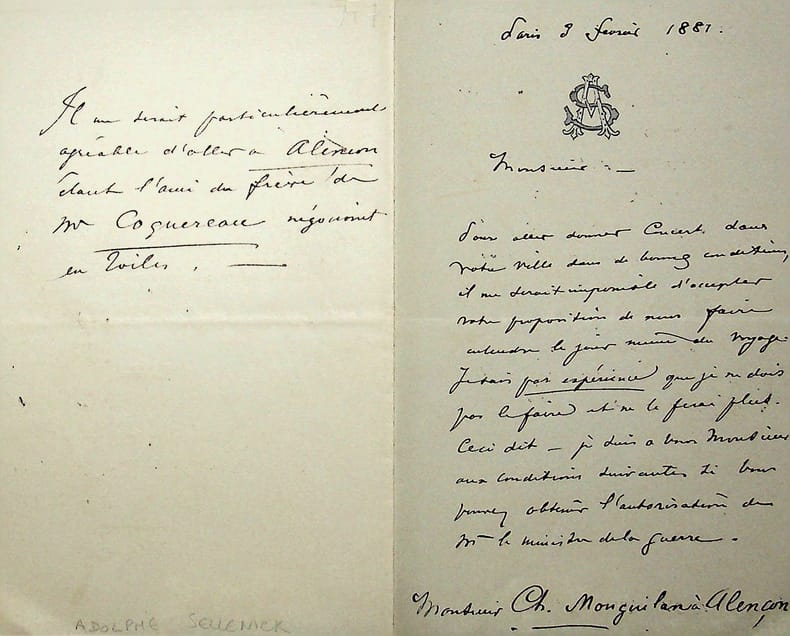 Il me serait particulièrement
agréable d'aller à Alençon
étant l'ami du frère de
Mr Coquereau négociant
en Toiles. —
ADOLPHE SELLENICK
Paris 3 février 1881.
Monsieur. —
Pour aller donner Concert dans
votre ville dans de bonnes conditions,
il me serait impossible d'accepter
votre proposition de nous faire
entendre le jour même du voyage.
Je sais par expérience que je ne dois
pas le faire et ne le ferai plus.
Ceci dit — je suis à vous Monsieur
aux conditions suivantes si vous
pouvez obtenir l'autorisation de
Mr le ministre de la guerre.
Monsieur Ch. à Alençon